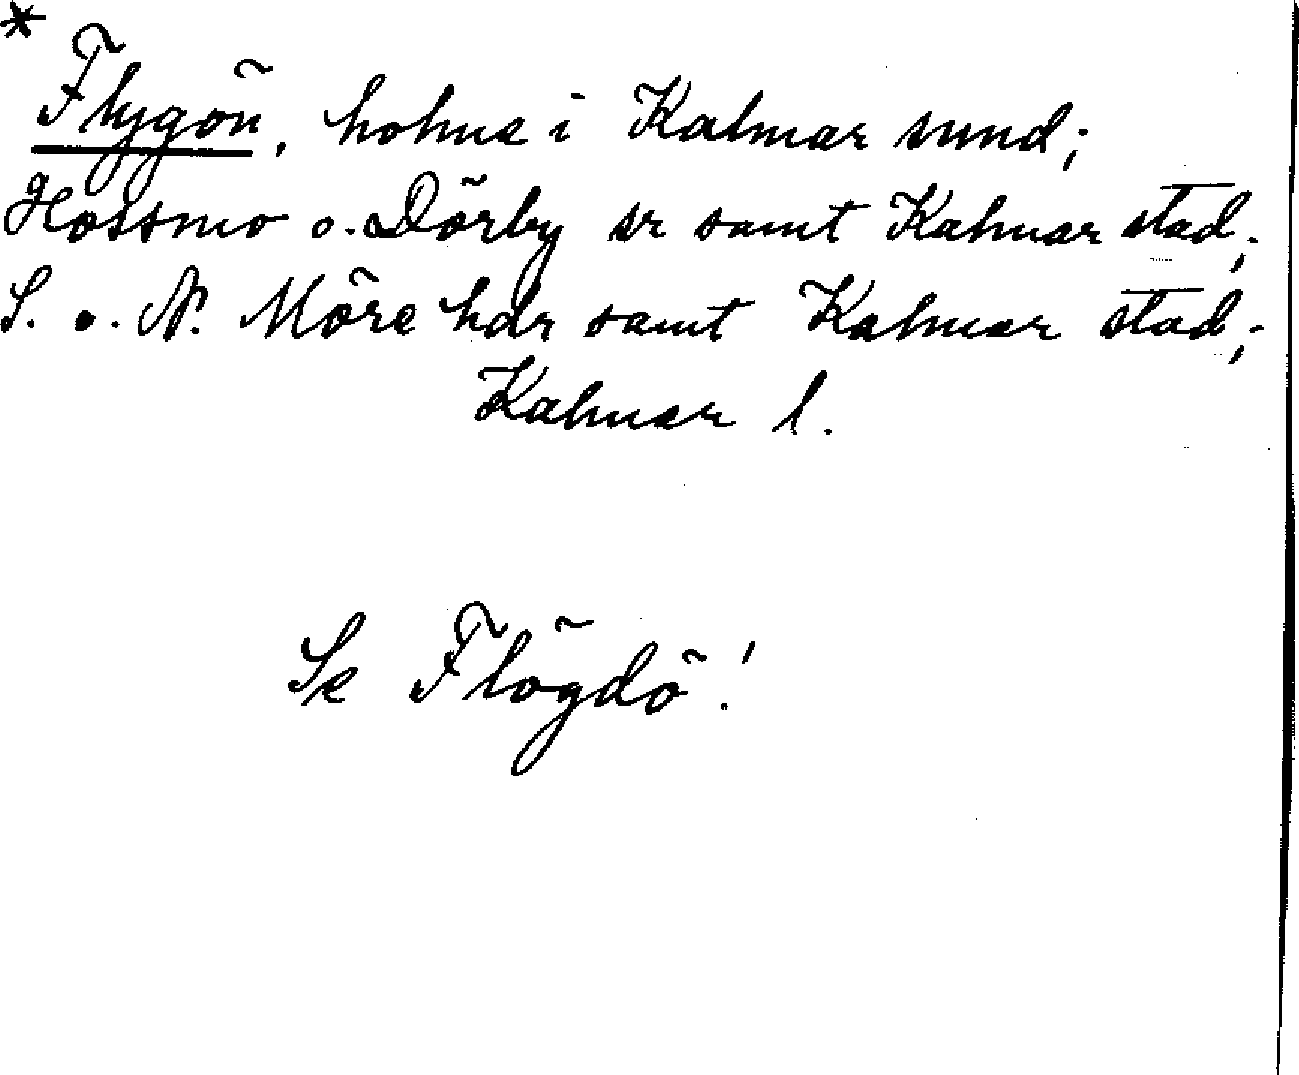 *
Flygön, holme i Kalmar sund;
Hossmo o. Dörby sr samt Kalmar stad;
S. o. N. Möre hdr samt Kalmar stad;
Kalmar l.
Se Flögdö!